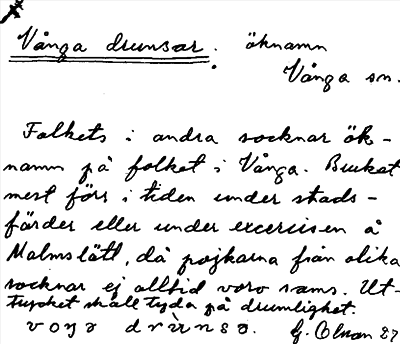 Vånga drunsar. öknamn
Vånga sn.
Folkets i andra socknar ök-
namn på folket i Vånga. Brukat
mest förr i tiden under stads-
färder eller under excercisen å
Malmslätt, då pojkarna från olika
socknar ej alltid voro sams. Ut-
trycket skall tyda på drumlighet.
voŋa drùnsa. G. Olson 27